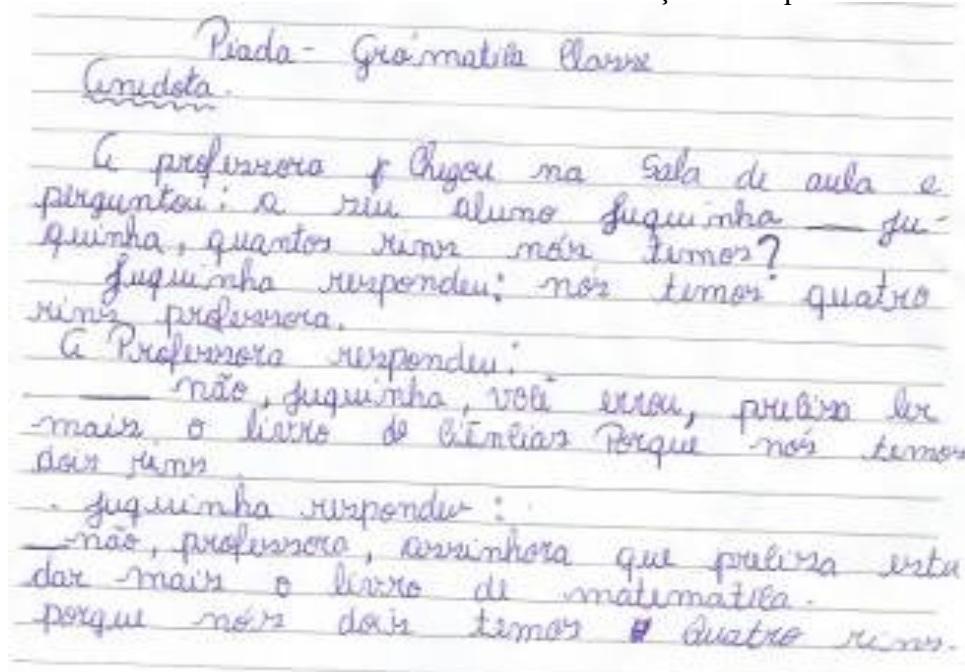 Piada - Grámatica Classe
Anedota.
A professora Chegou na Sala de aula e
perguntou: a seu aluno Juquinha — Ju-
quinha, quantos rins nós temos?
Juquinha respondeu: nós temos quatro
rins professora.
A Professora respondeu:
— não, Juquinha, você errou, precisa ler
mais o livro de ciências Porque nós temos
dois rins
Juquinha respondeu:
— não, professora, assinhora que precisa estu
dar mais o livro de matimatica.
porque nós dois temos Quatro rins.